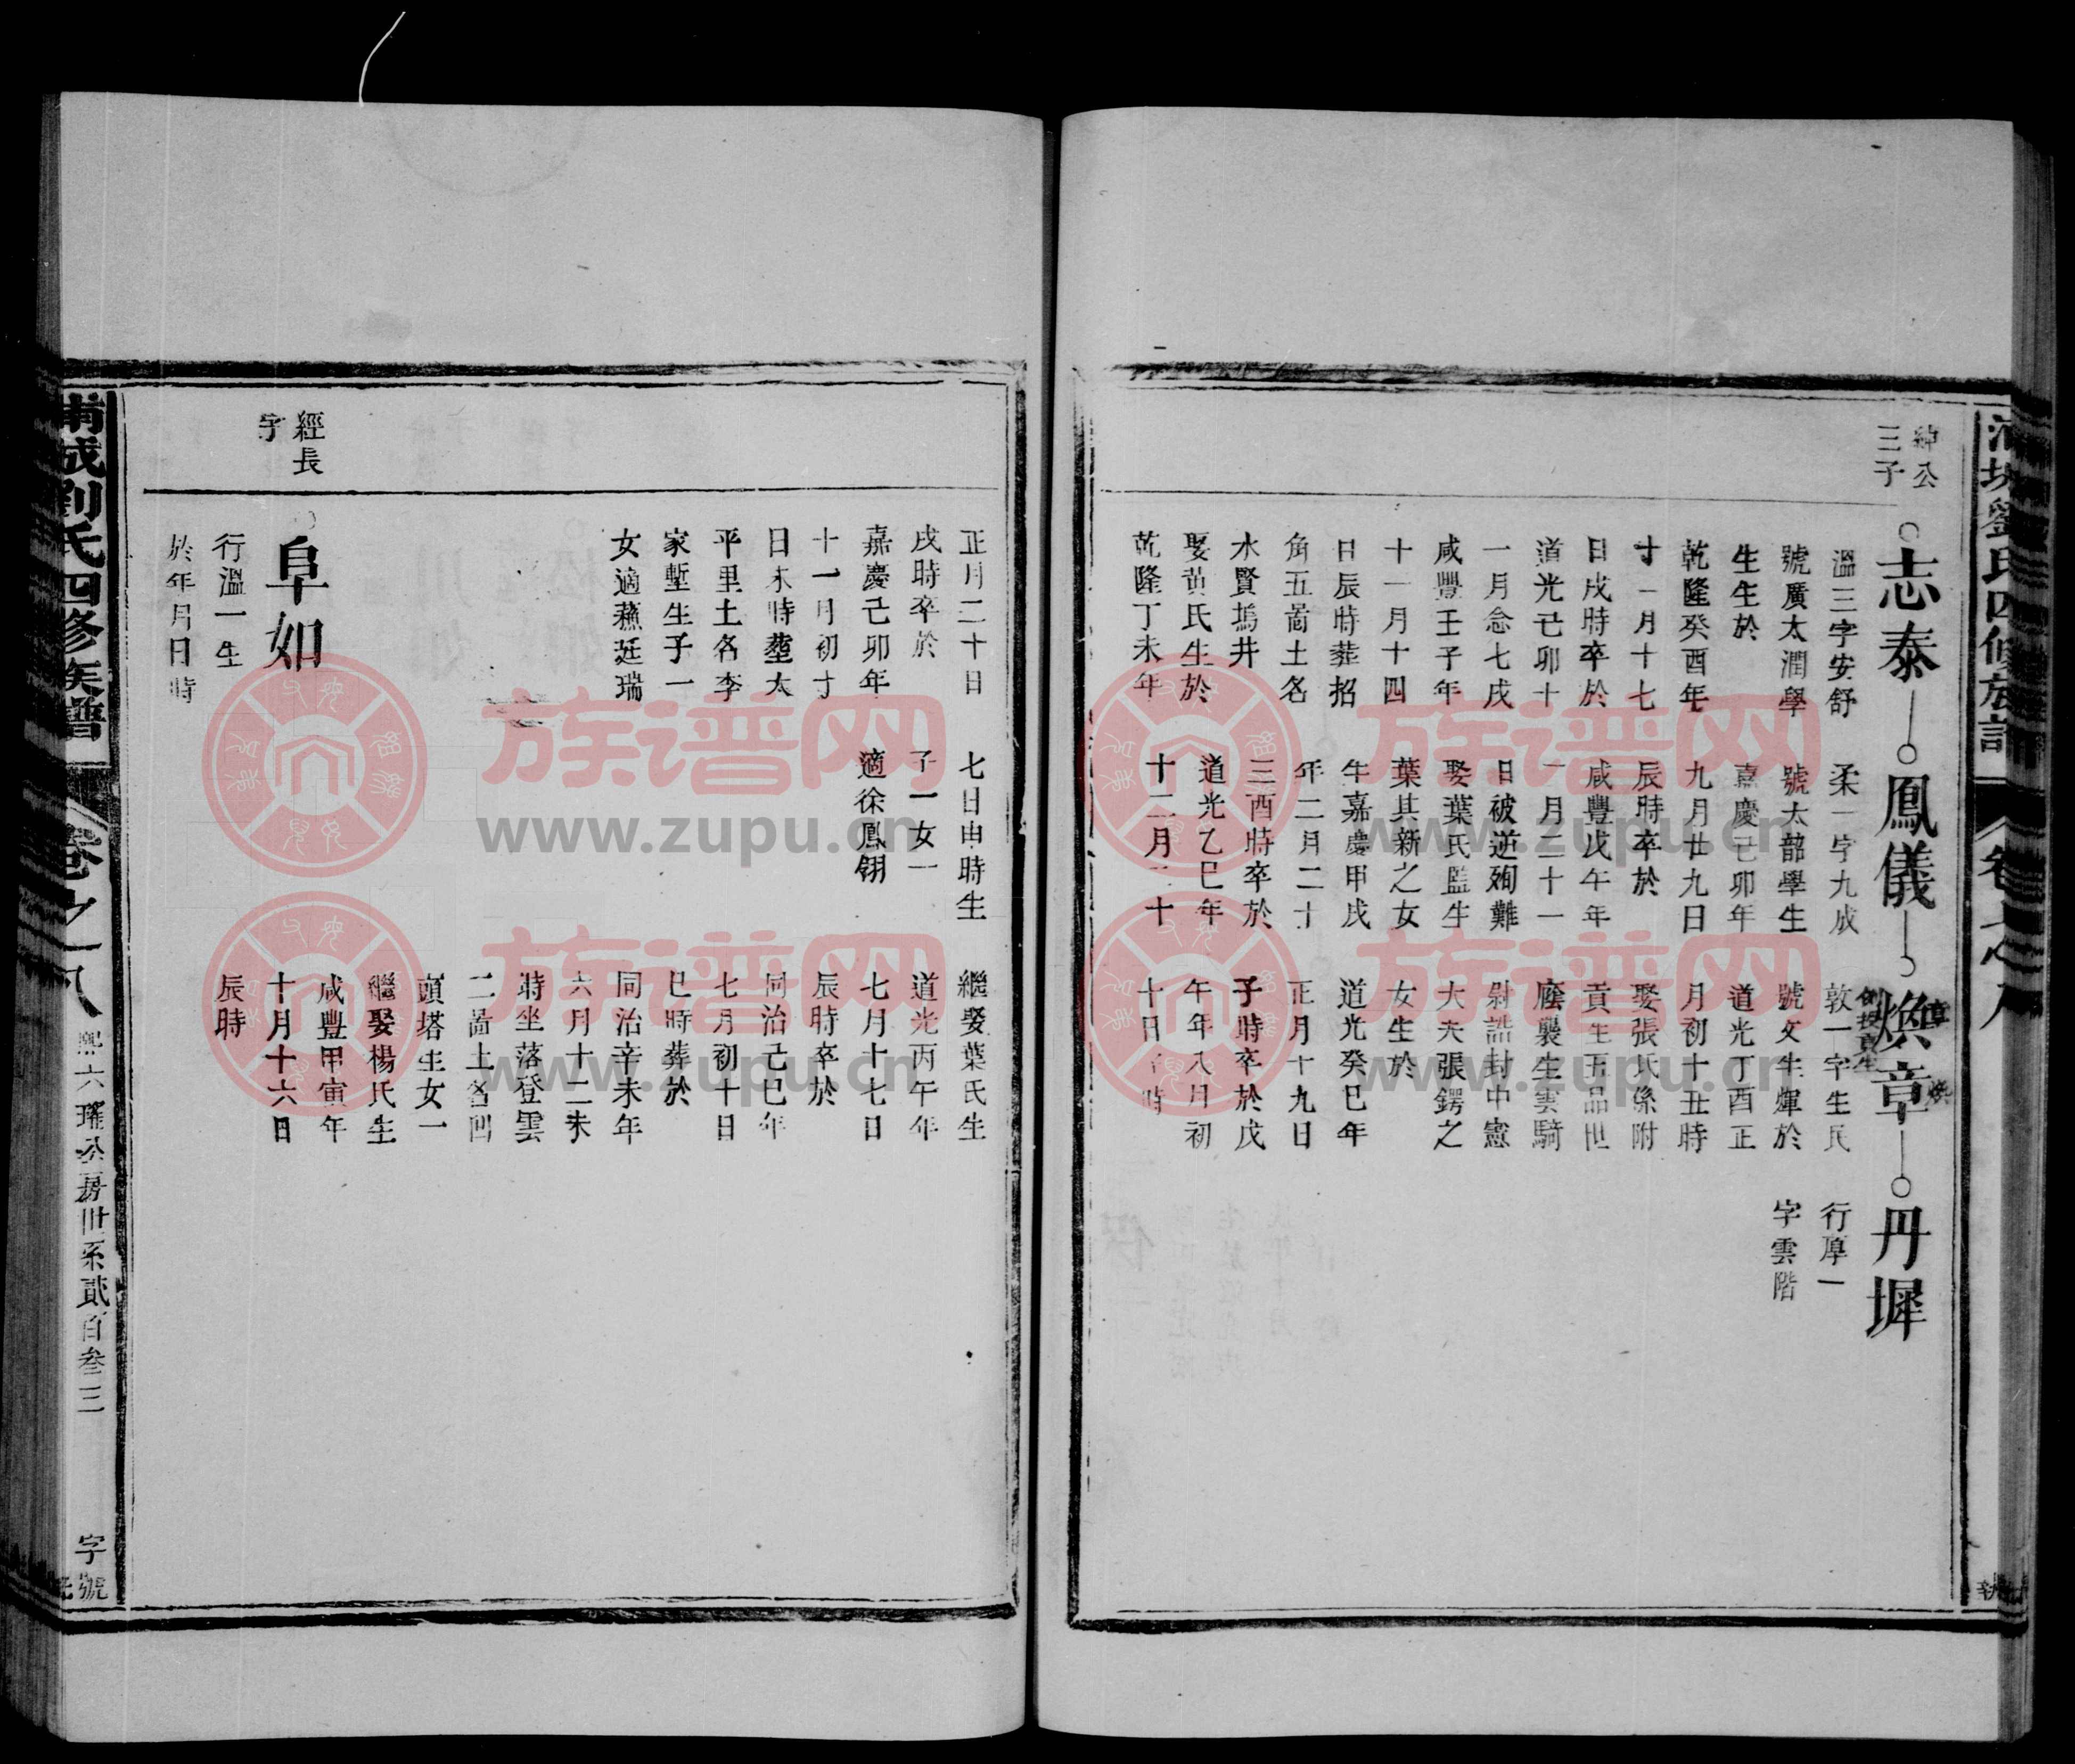 紳公
三子
志泰
溫三字安舒
號廣太潤學
生生於
乾隆癸酉年
十一月十七
日戌時卒於
道光己卯十
一月念七戌
咸豐壬子年
十一月十四
日辰時葬招
角五啚土名
水賢塢井
娶黄氏生於
乾隆丁未年
正月二十日
戌時卒於
嘉慶己卯年
十一月初十
日未時塟太
平里土名李
家塹生子一
女適蘓廷瑞
鳳儀
柔一字九成
號太韶學生
嘉慶己卯年
九月廿九日
辰時卒於
咸豐戊午年
二月二十一
日被逆殉難
娶葉氏監生
葉其新之女
生嘉慶甲戌
年二月二十
三酉時卒於
道光乙巳年
十二月二十
七日申時生
子一女一
適徐鳳翎
煥章
例授貢生
敦一字生民
號文生煇於
道光丁酉正
月初十丑時
娶張氏係附
貢生五品世
廕襲生雲騎
尉誥封中憲
大夫張鍔之
女生於
道光癸巳年
正月十九日
子時卒於戊
午年八月初
十日子時
繼娶葉氏生
道光丙午年
七月十七日
辰時卒於
同治己巳年
七月初十日
巳時葬於
同治辛未年
六月十二未
時坐落登雲
二啚土名四
頭塔生女一
繼娶楊氏生
咸豐甲寅年
十月十六日
辰時
丹墀
行厚一
字雲階
經長
子
阜如
行溫一生
於年月日時
南城劉氏四修族譜
卷之八
熙六瓘公房世系貳百叁三
字號
www.zupu.cn
族谱网
www.zupu.cn
族谱网
www.zupu.cn
族谱网
www.zupu.cn
族谱网